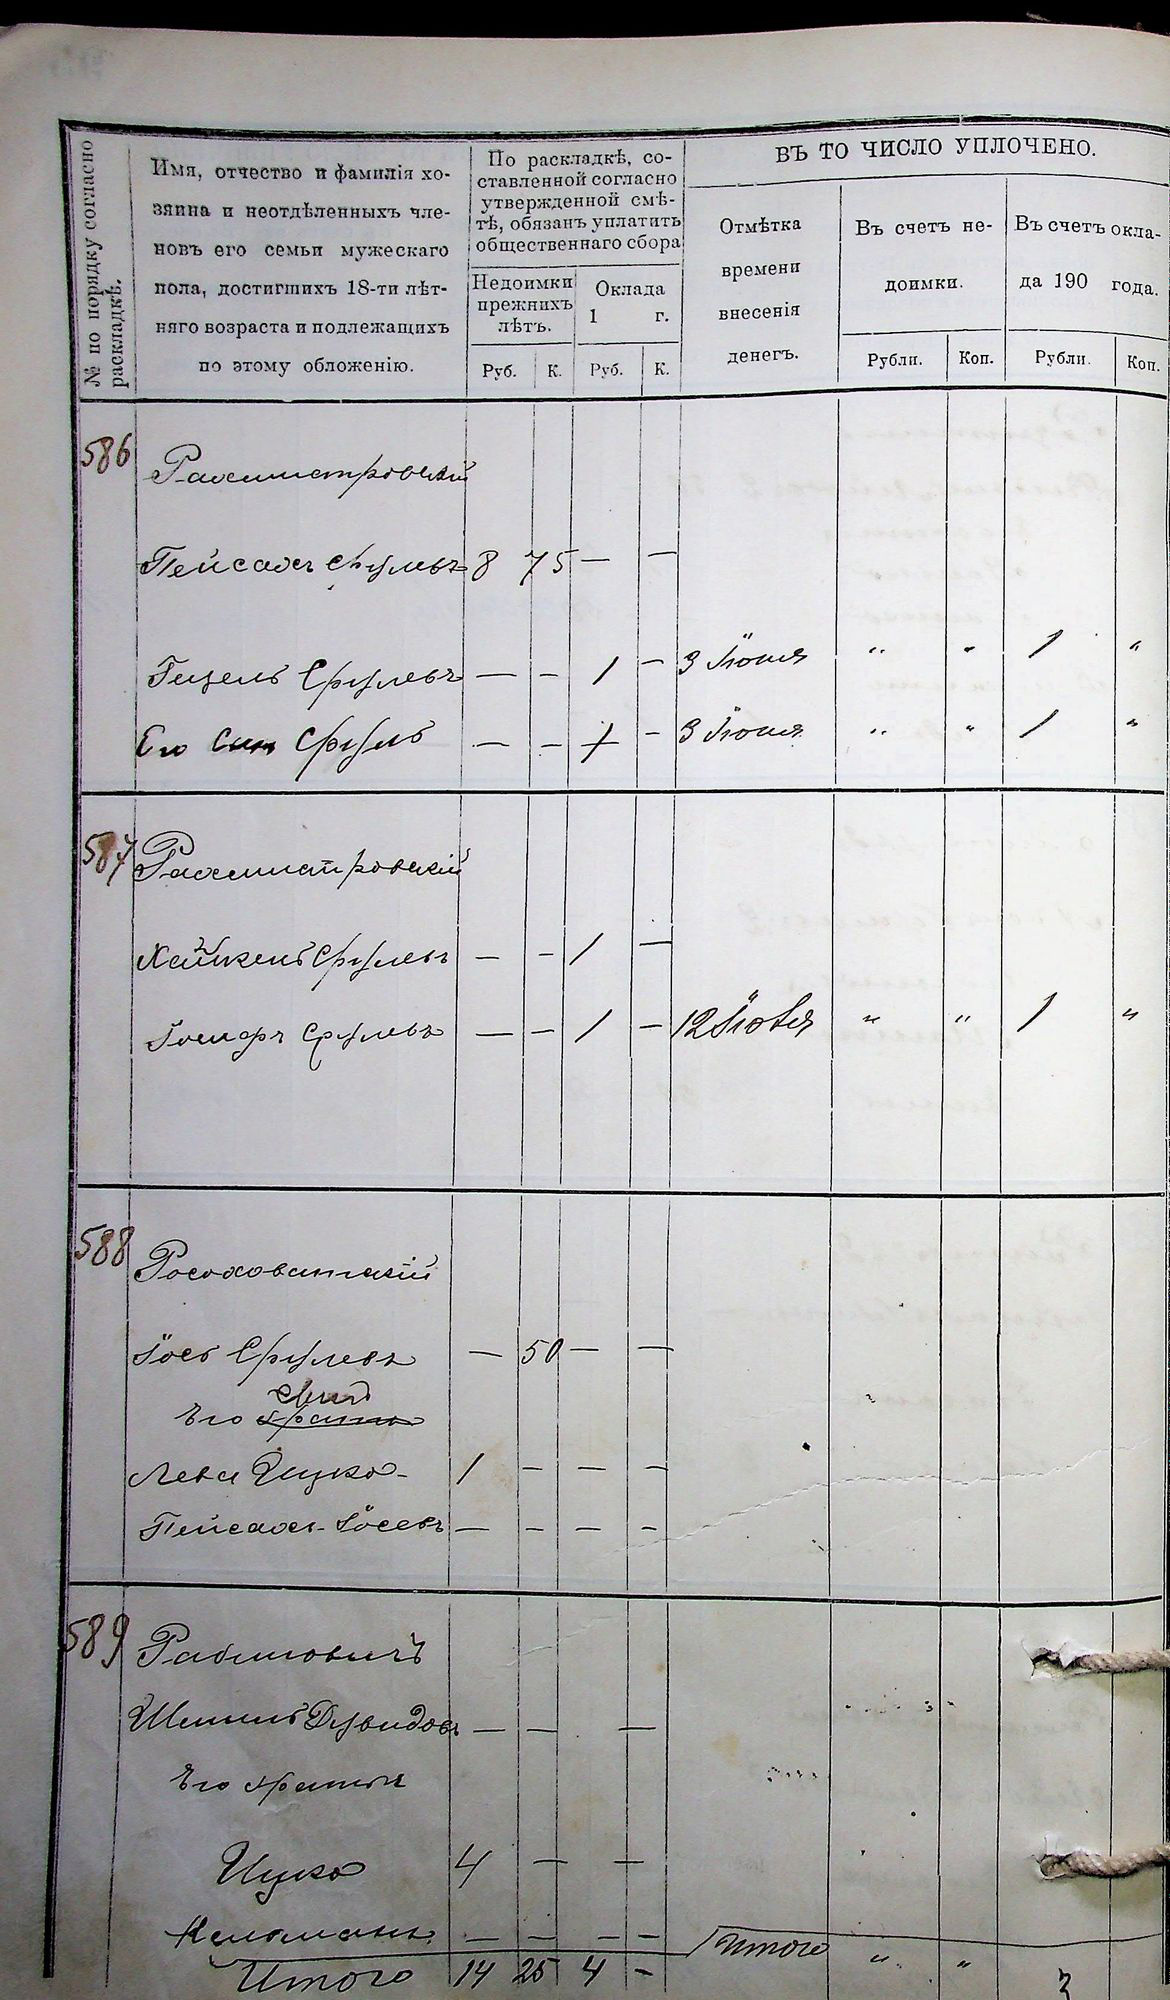 № по порядку согласно
раскладкѣ.
Имя, отчество и фамилія хо-
зяина и неотдѣленныхъ чле-
новъ его семьи мужескаго
пола, достигшихъ 18-ти лѣт-
няго возраста и подлежащихъ
по этому обложенію.
По раскладкѣ, со-
ставленной согласно
утвержденной смѣ-
тѣ, обязанъ уплатить
общественнаго сбора
Недоимки
прежнихъ
лѣтъ.
Оклада
1 г.
Руб. К. Руб. К.
ВЪ ТО ЧИСЛО УПЛОЧЕНО.
Отмѣтка
времени
внесенія
денегъ.
Въ счетъ не-
доимки.
Въ счетъ окла-
да 190 года.
Рубли. Коп. Рубли. Коп.
586
Рахмистровскій
Пейсахъ Срулевъ 8 75 — —
Срулевъ — - 1 — 3 Іюня " " 1 "
Его Сын Сруль — - 1 - 3 Іюня " " 1 "
587
Рахмистровскій
Срулевъ — - 1 —
Срулевъ — — 1 — 12 Іюля " " 1 "
588
Росоховатскій
Іось Срулевъ — 50 — —
сын
Его братья
Лейб Ицко 1 — — —
Пейсахъ Іосевъ — - — -
589
Рабиновичъ
Давидовъ — — —
Его братья
Ицко 4 — —
Кельманъ — — — —
Итого 14 25 4 - Итого " " 3